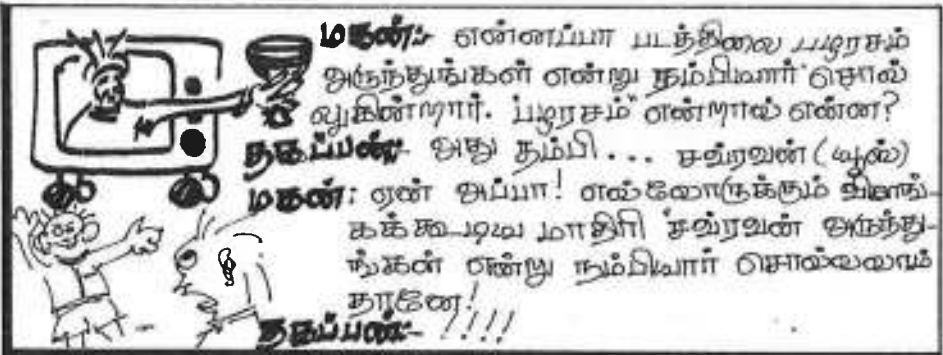 மகன்:- என்னப்பா படத்திலை பழரசம்
அருந்துங்கள் என்று நம்பியார் சொல்
லுகின்றார். பழரசம் என்றால் என்ன?
தகப்பன்:- அது தம்பி... சவ்ரவன் (யூஸ்)
மகன்: ஏன் அப்பா! எல்லோருக்கும் விளங்-
கக்கூடிய மாதிரி சவ்ரவன் அருந்து-
ங்கள் என்று நம்பியார் சொல்லலாம்
தானே!
தகப்பன்:- !!!!